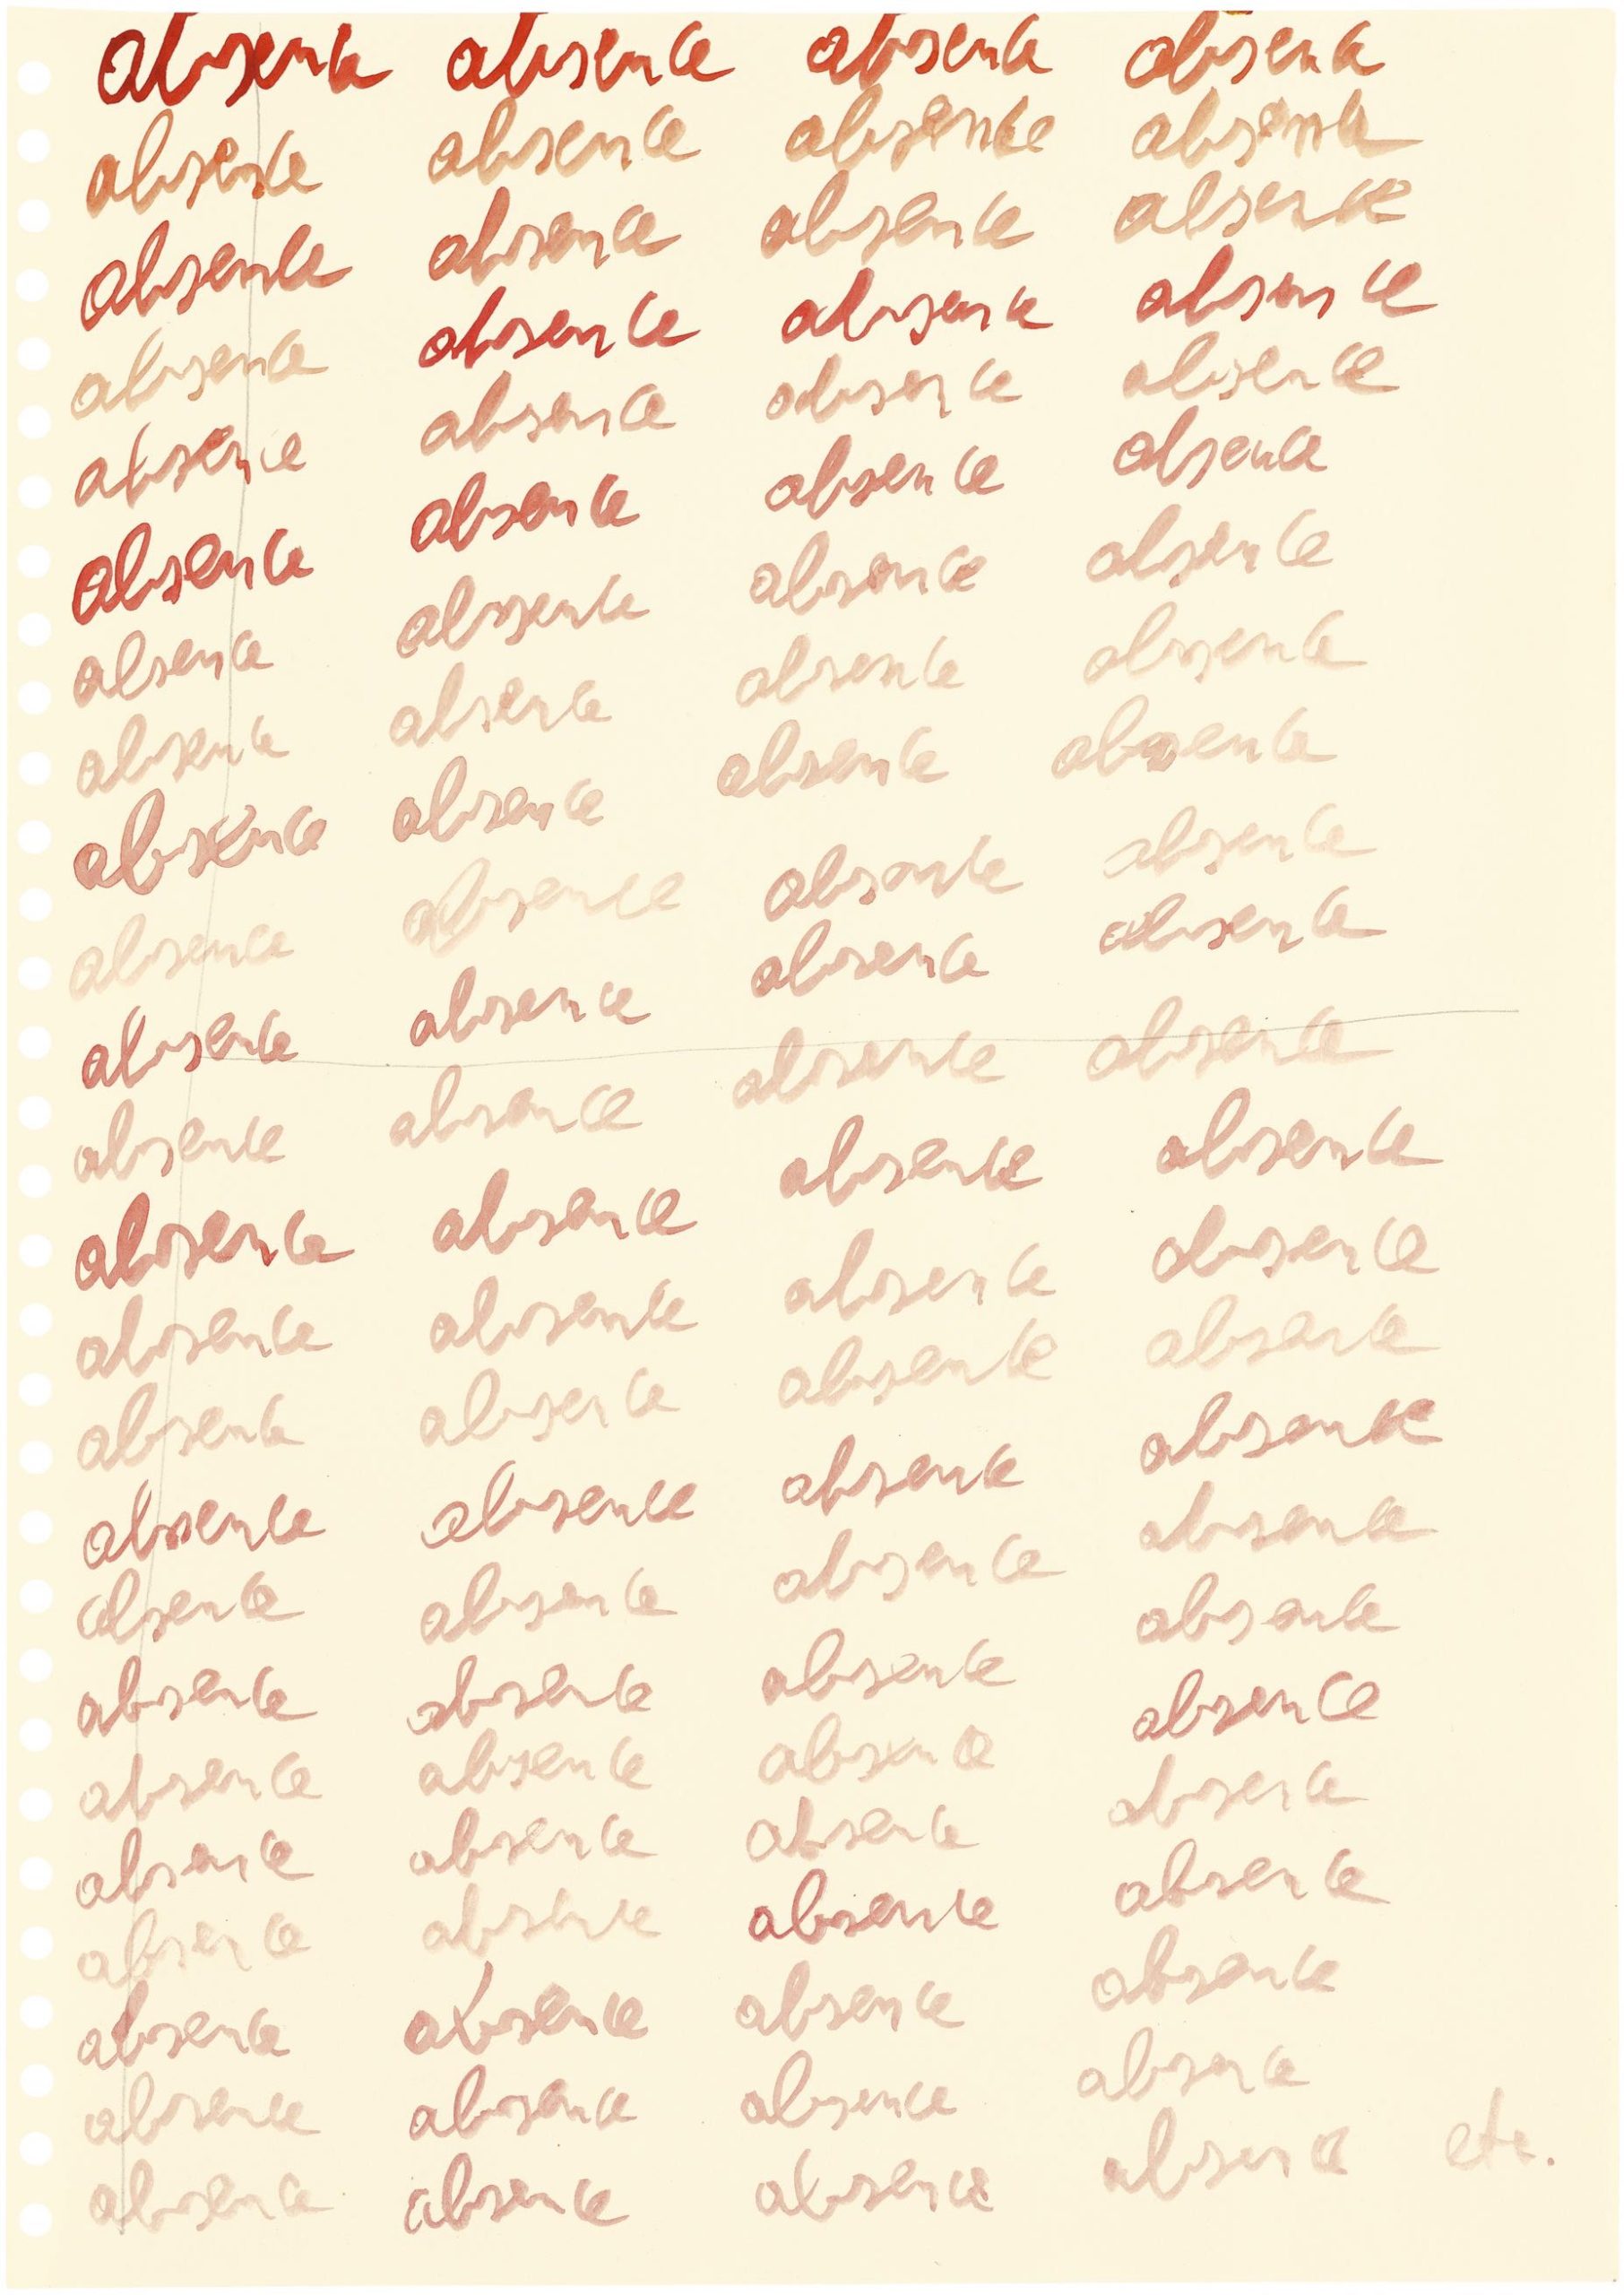 absence absence absence absence
absence absence absence absence
absence absence absence absence
absence absence absence absence
absence absence absence absence
absence absence absence absence
absence absence absence absence
absence absence absence absence
absence absence absence absence
absence absence absence absence
absence absence absence absence
absence absence absence absence
absence absence absence absence
absence absence absence absence
absence absence absence absence
absence absence absence absence
absence absence absence absence
absence absence absence absence
absence absence absence absence
absence absence absence absence
absence absence absence absence
absence absence absence absence
absence absence absence absence
absence absence absence absence etc.